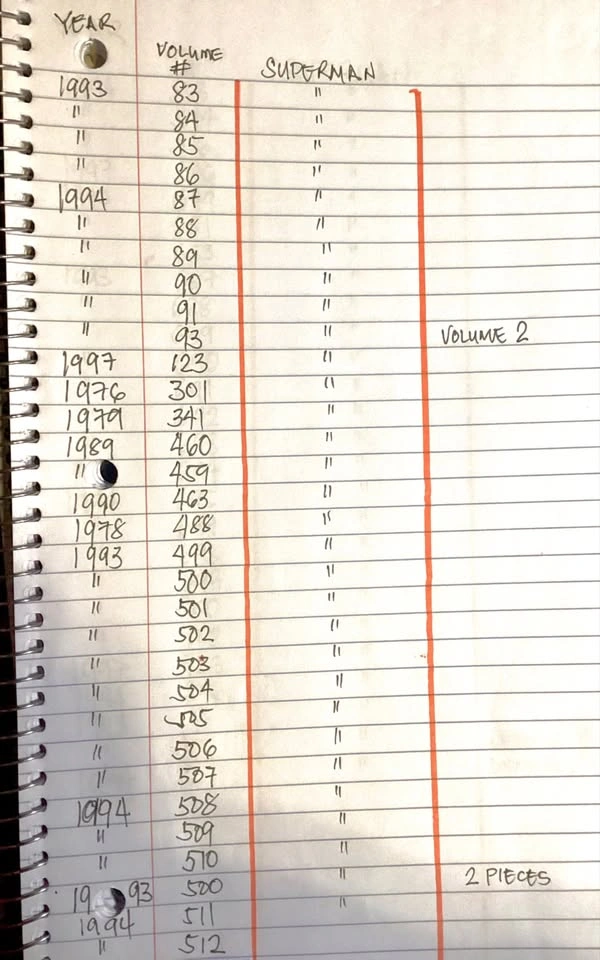 YEAR VOLUME # SUPERMAN
1993 83 "
" 84 "
" 85 "
" 86 "
1994 87 "
" 88 "
" 89 "
" 90 "
" 91 "
" 93 " VOLUME 2
1997 123 "
1976 301 "
1979 341 "
1989 460 "
" 459 "
1990 463 "
1978 488 "
1993 499 "
" 500 "
" 501 "
" 502 "
" 503 "
" 504 "
" 505 "
" 506 "
" 507 "
1994 508 "
" 509 "
" 510 "
1993 500 " 2 PIECES
1994 511 "
" 512